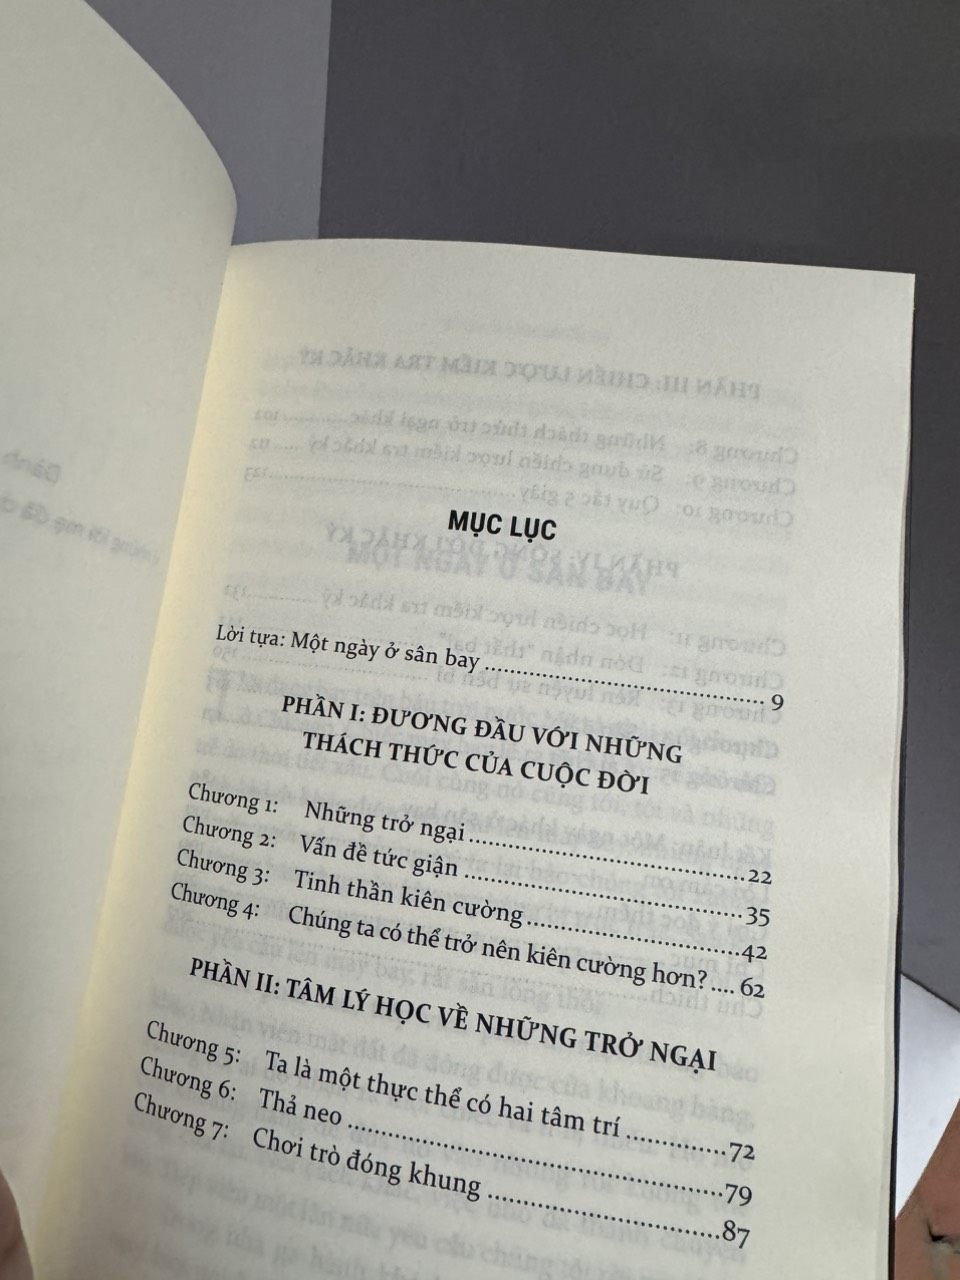 MỤC LỤC
Lời tựa: Một ngày ở sân bay ........................................ 9
PHẦN I: ĐƯƠNG ĐẦU VỚI NHỮNG
THÁCH THỨC CỦA CUỘC ĐỜI
Chương 1: Những trở ngại ........................................ 22
Chương 2: Vấn đề tức giận ........................................ 35
Chương 3: Tinh thần kiên cường ........................................ 42
Chương 4: Chúng ta có thể trở nên kiên cường hơn? .... 62
PHẦN II: TÂM LÝ HỌC VỀ NHỮNG TRỞ NGẠI
Chương 5: Ta là một thực thể có hai tâm trí ............ 72
Chương 6: Thả neo ........................................ 79
Chương 7: Chơi trò đóng khung ........................................ 87